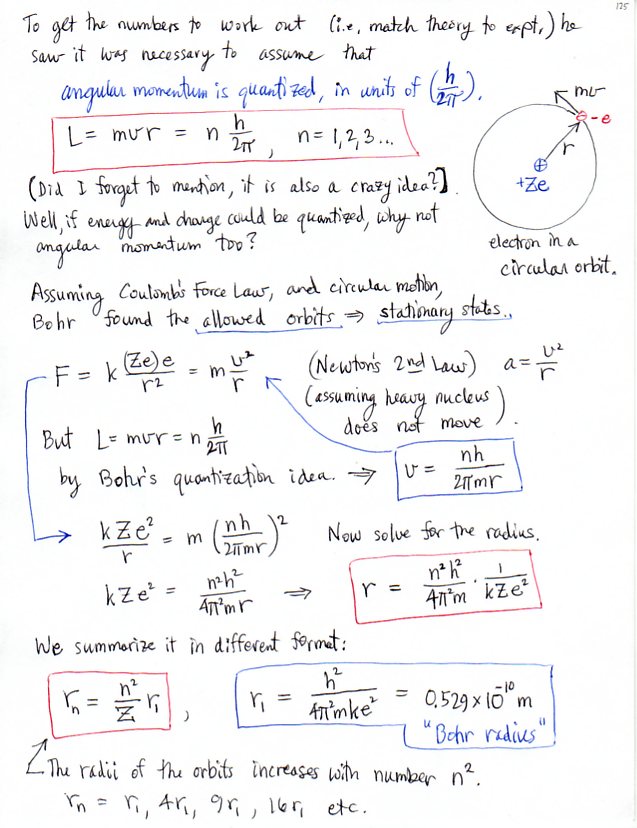 125
To get the numbers to work out (i.e., match theory to expt.,) he
saw it was necessary to assume that
angular momentum is quantized, in units of (h/2π).
L = mvr = n h/2π , n = 1, 2, 3...
mv
-e
r
+Ze
electron in a
circular orbit.
(Did I forget to mention, it is also a crazy idea?)
Well, if energy and charge could be quantized, why not
angular momentum too?
Assuming Coulomb's Force Law, and circular motion,
Bohr found the allowed orbits ⇒ stationary states.
F = k (Ze)e/r² = m v²/r (Newton's 2nd Law) a = v²/r
(assuming heavy nucleus
does not move).
But L = mvr = n h/2π
by Bohr's quantization idea. ⇒ v = nh/2πmr
kZe²/r = m (nh/2πmr)² Now solve for the radius.
kZe² = n²h²/4π²mr ⇒ r = n²h²/4π²m · 1/kZe²
We summarize it in different format:
rₙ = n²/Z r₁ , r₁ = h²/4π²mke² = 0.529 × 10⁻¹⁰ m
"Bohr radius"
The radii of the orbits increases with number n².
rₙ = r₁, 4r₁, 9r₁, 16r₁ etc.